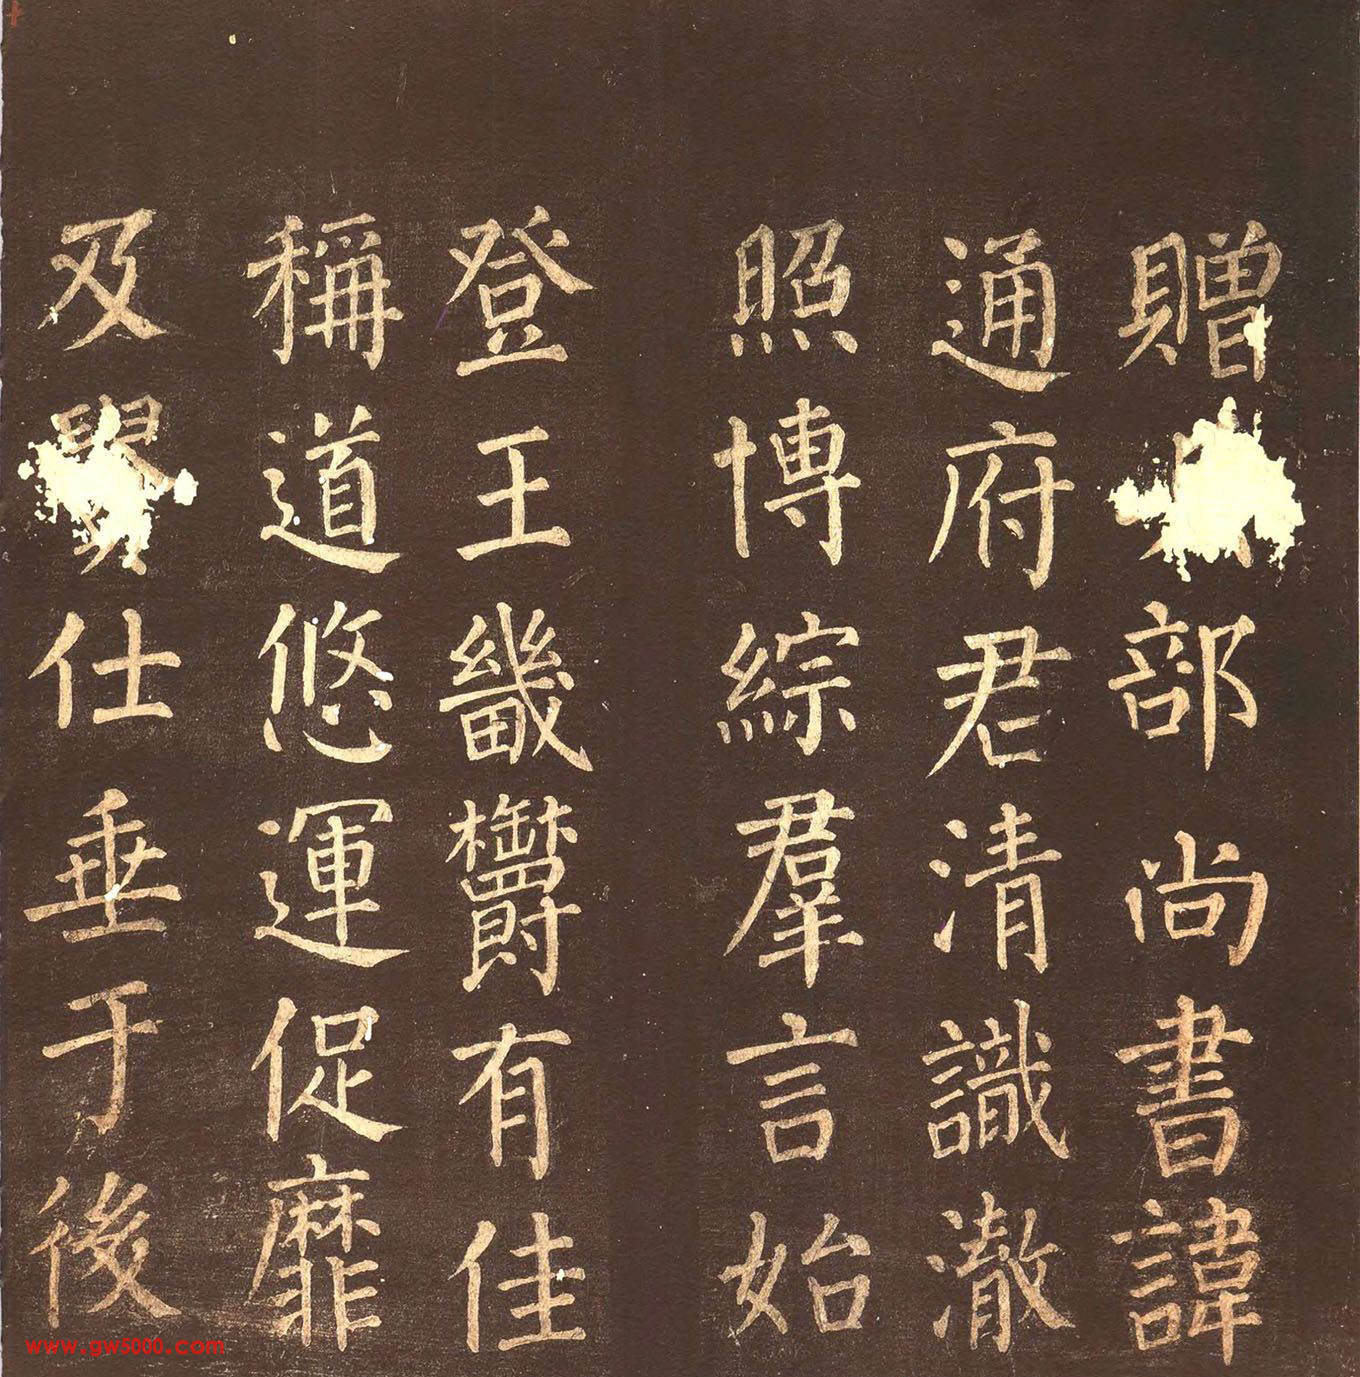 贈部尚書諱
通府君清識澈
照博綜羣言始
登王畿欝有佳
稱道悠運促靡
及仕垂于後
www.gw5000.com